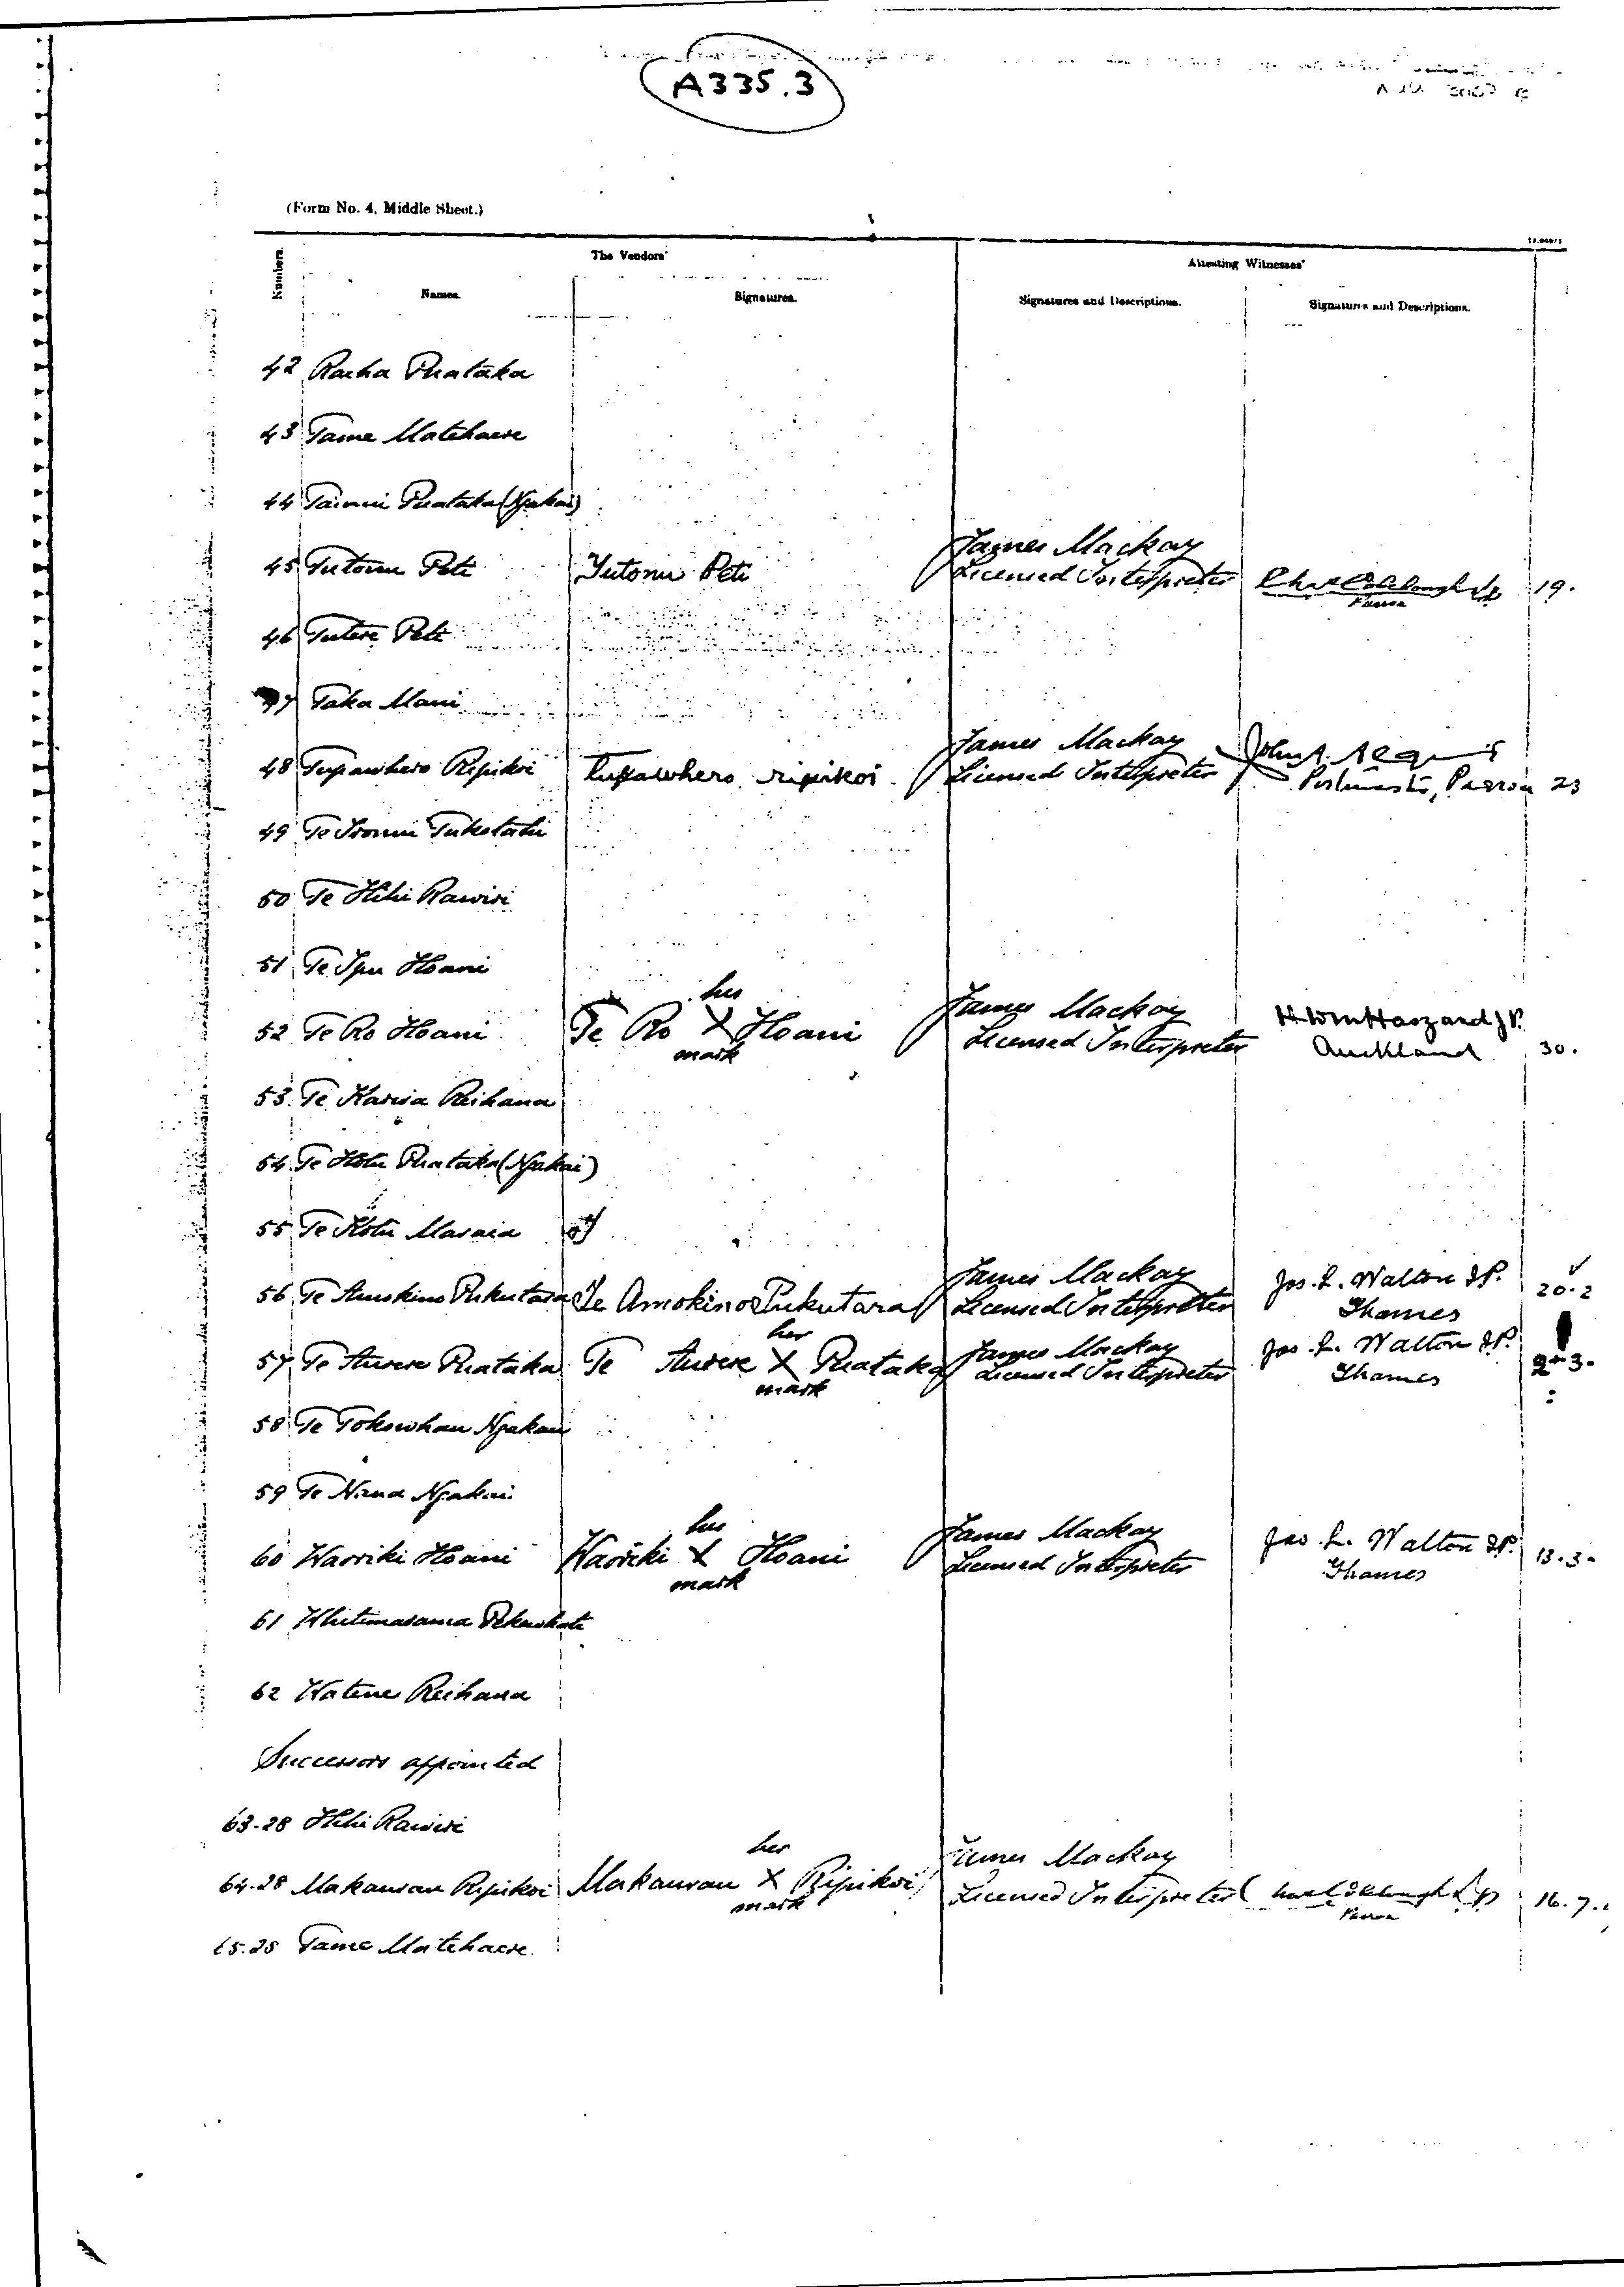 A335.3
(Form No. 4, Middle Sheet.)
Numbers.
The Vendors'
Attesting Witnesses'
Names.
Signatures.
Signatures and Descriptions.
Signatures and Descriptions.
42 Raiha Puataka
43 Tame Matehaere
44 Tainui Puataka (Ngakai)
James Mackay
45 Tutonu Peti Tutonu Peti Licensed Interpreter 19.
Paeroa
46 Tutere Peti
47 Taka Mani
James Mackay John A.
48 Tupawhero Ripikoi tupawhero ripikoi Licensed Interpreter Postmaster, Paeroa 23
49 Te Tukotahi
50 Te Hihi Rawiri
51 Te Ipu Hoani
his
James Mackay
52 Te Ro Hoani Te Ro X Hoani Licensed Interpreter Auckland 30.
mark
53 Te Reihana
54 Te Hotu Puataka (Ngakai)
55 Te Hotu Maraia
James Mackay Jos. L. Walton J.P.
56 Te Amokino Pukutara Te Amokino Pukutara Licensed Interpreter Thames 20.2
her
James Mackay Jos. L. Walton J.P.
57 Te Aurere Puataka Te Aurere X Puataka Licensed Interpreter Thames
mark
58 Te Tokowhau Ngakai
59 Te Nana Ngakai
his
James Mackay Jas. L. Walton J.P.
60 Warriki Hoani Warriki X Hoani Licensed Interpreter Thames 13.3
mark
61 Whitimarama
62 Watene Reihana
Successors appointed
63.28 Hihi Rawiri
her
James Mackay
64.28 Makaurau Ripikoi Makaurau X Ripikoi Licensed Interpreter 16.7
mark
Paeroa
65.25 Tame Matehaere